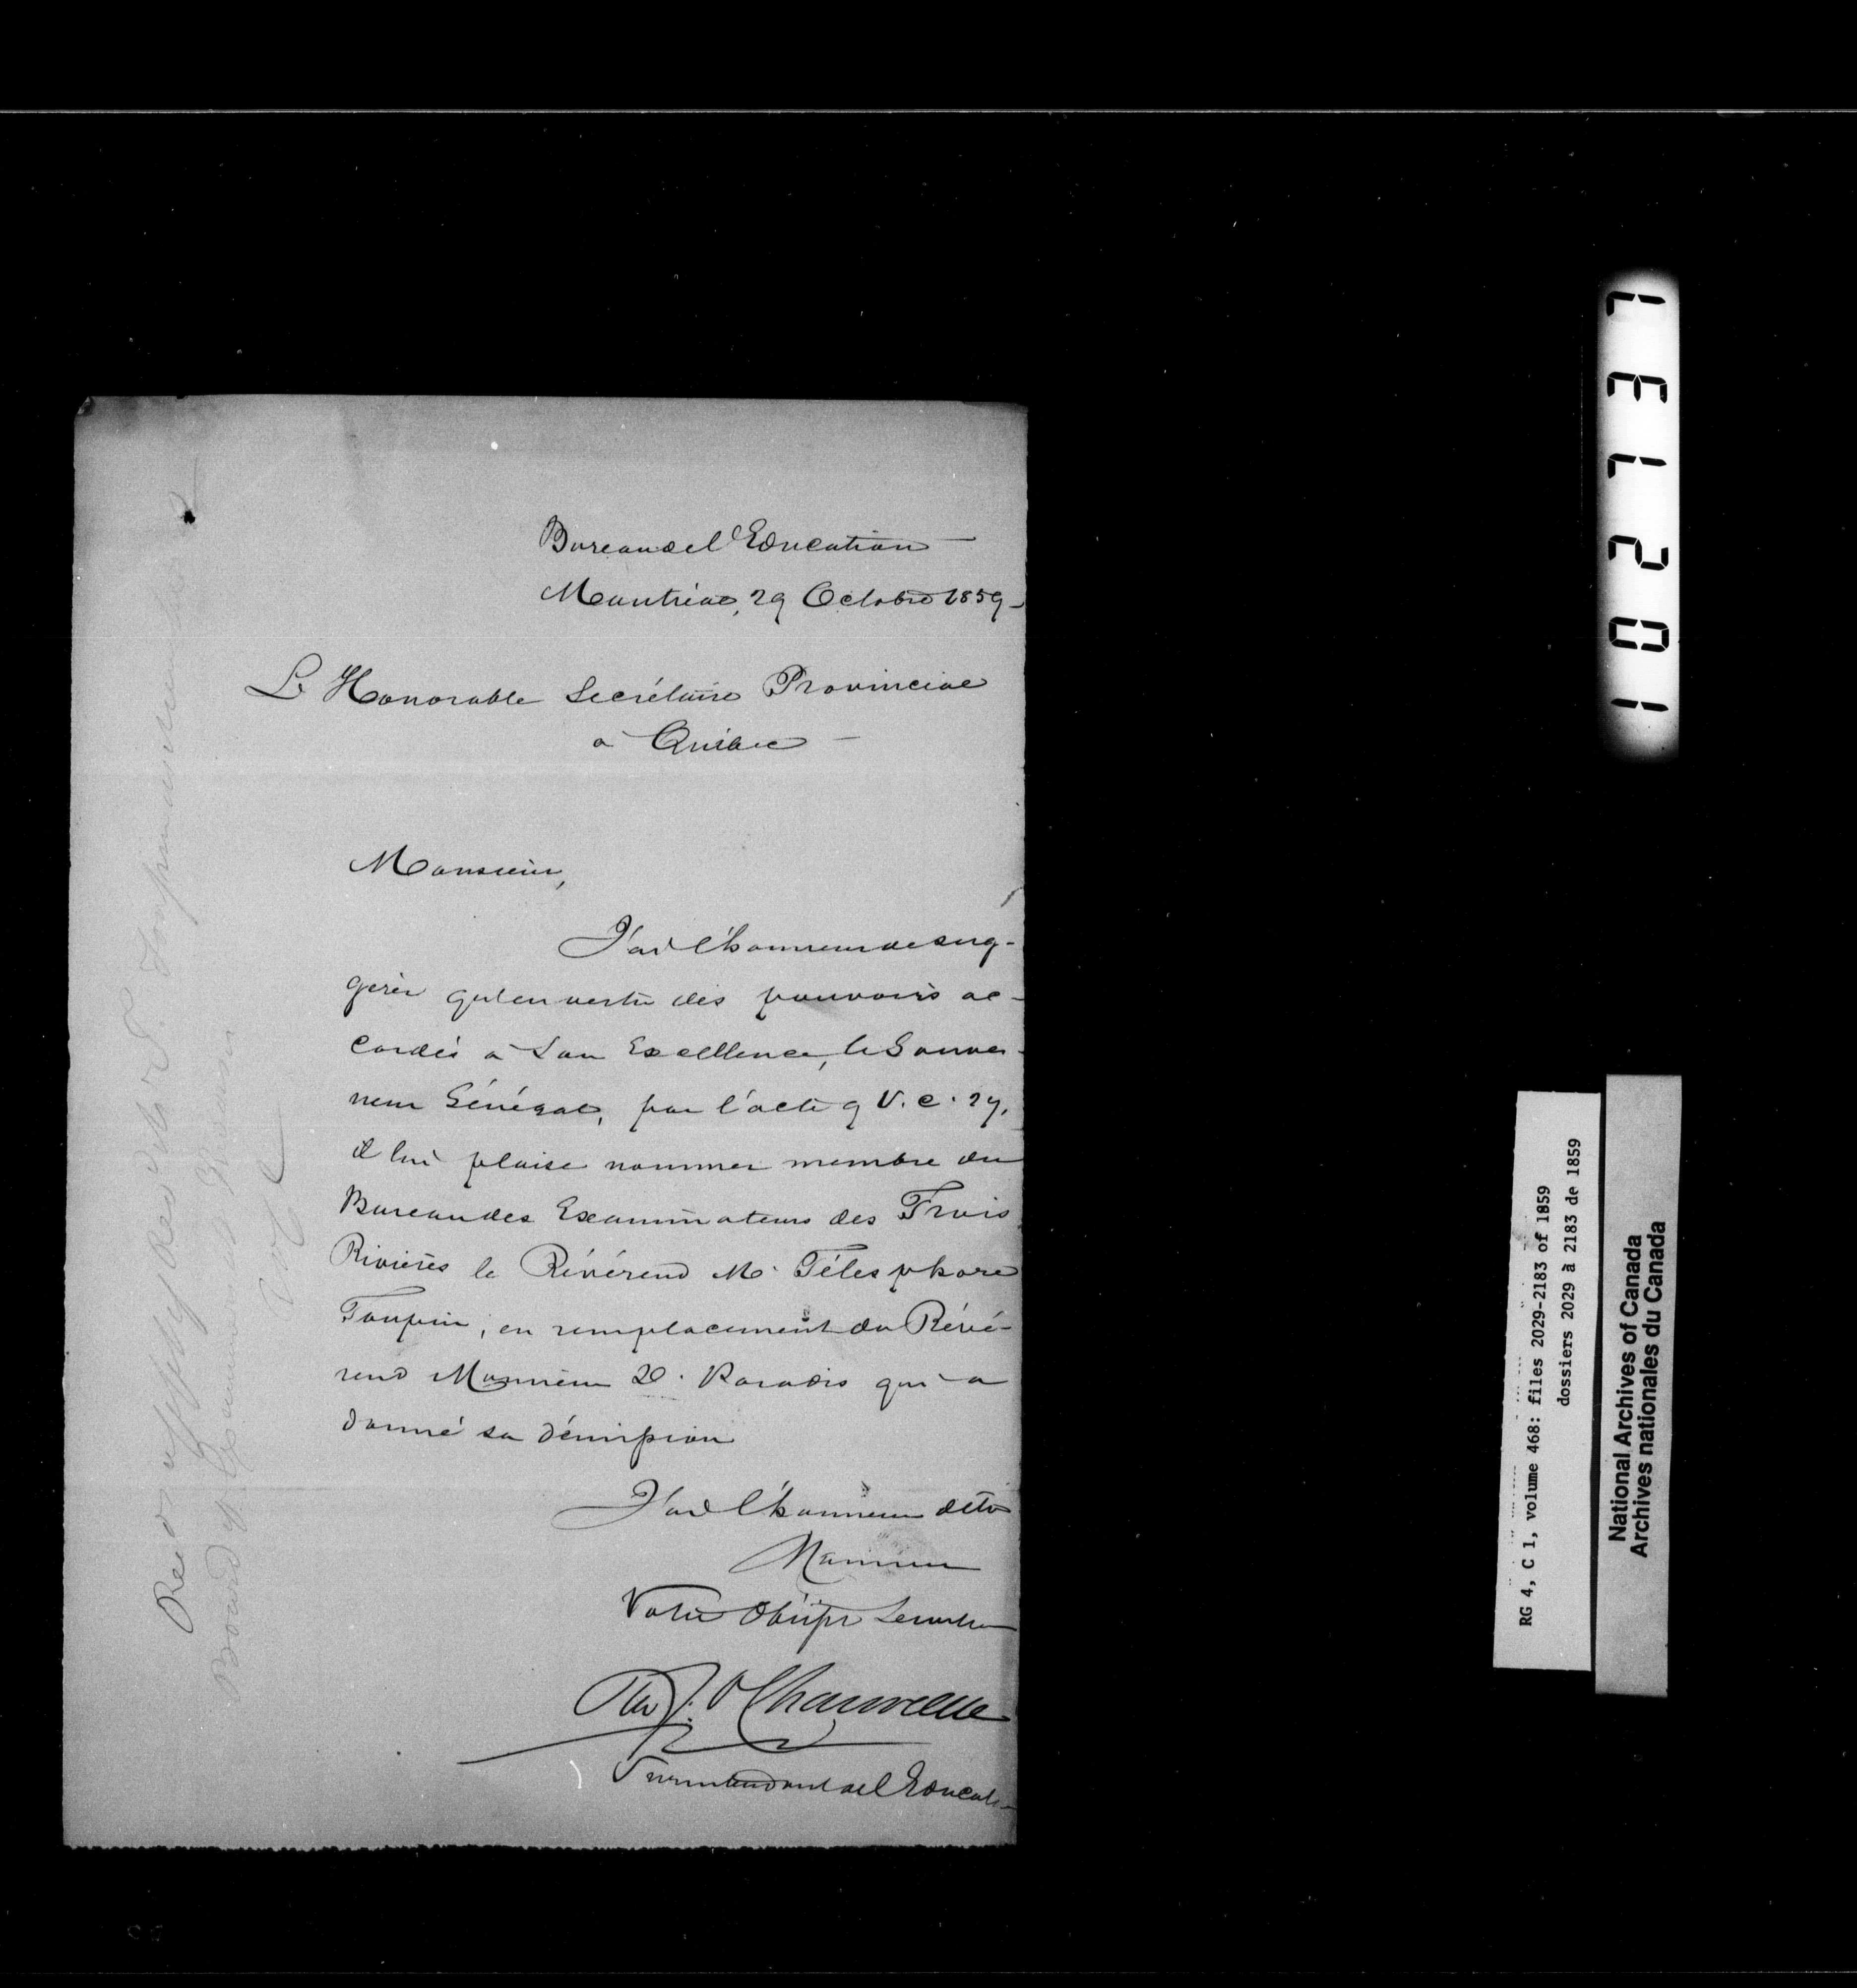 Bureau de l'Education
Montréal, 29 Octobre 1859
L'Honorable Secrétaire Provincial
à Québec
Monsieur,
J'ai l'honneur de sug-
gérer qu'en vertu des pouvoirs ac-
cordés à Son Excellence, le Gouver-
neur Général, par l'acte 9 V. c. 27,
il lui plaise nommer membre du
Bureau des Examinateurs des Trois
Rivières le Révérend M. Télesphore
Toupin, en remplacement du Révé-
rend Monsieur D. Paradis qui a
donné sa démission
J'ai l'honneur d'être
Monsieur
Votre Obéist Serviteur
Pierre J. O. Chauveau
Surintendant de l'Education
Board of Examiners
1021731
RG 4, C 1, volume 468: files 2029-2183 of 1859
dossiers 2029 à 2183 de 1859
National Archives of Canada
Archives nationales du Canada